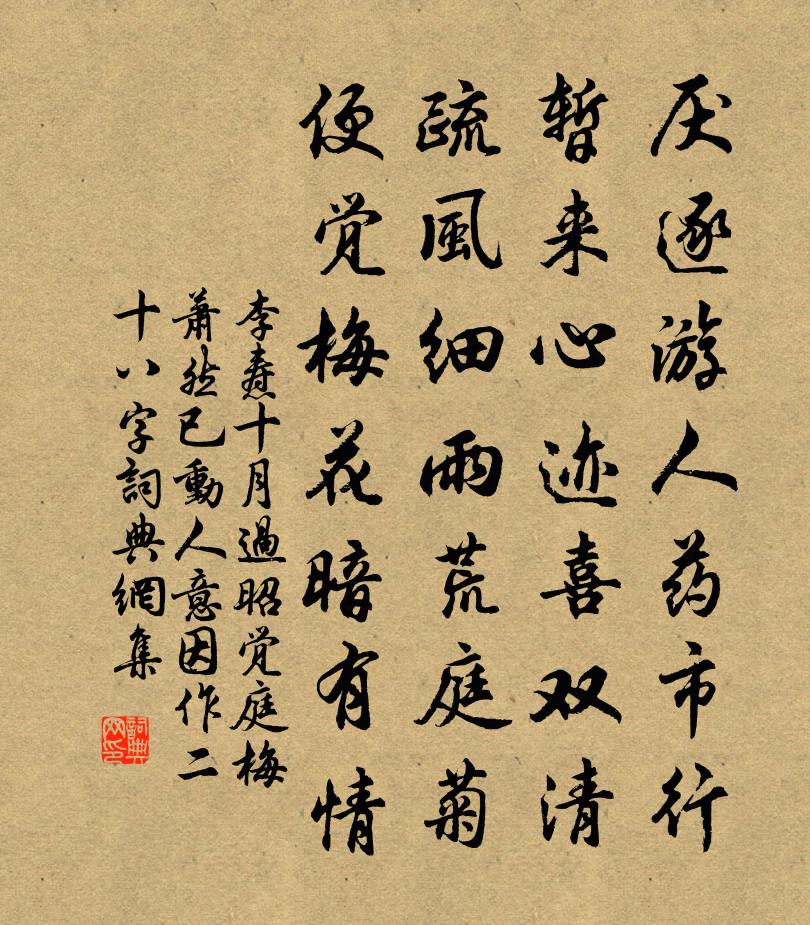 厌逐游人药市行
暂来心迹喜双清
疏風细雨荒庭菊
便觉梅花暗有情
李焘十月過昭觉庭梅
萧然已動人意因作二
十八字詞典網集
詞典网印